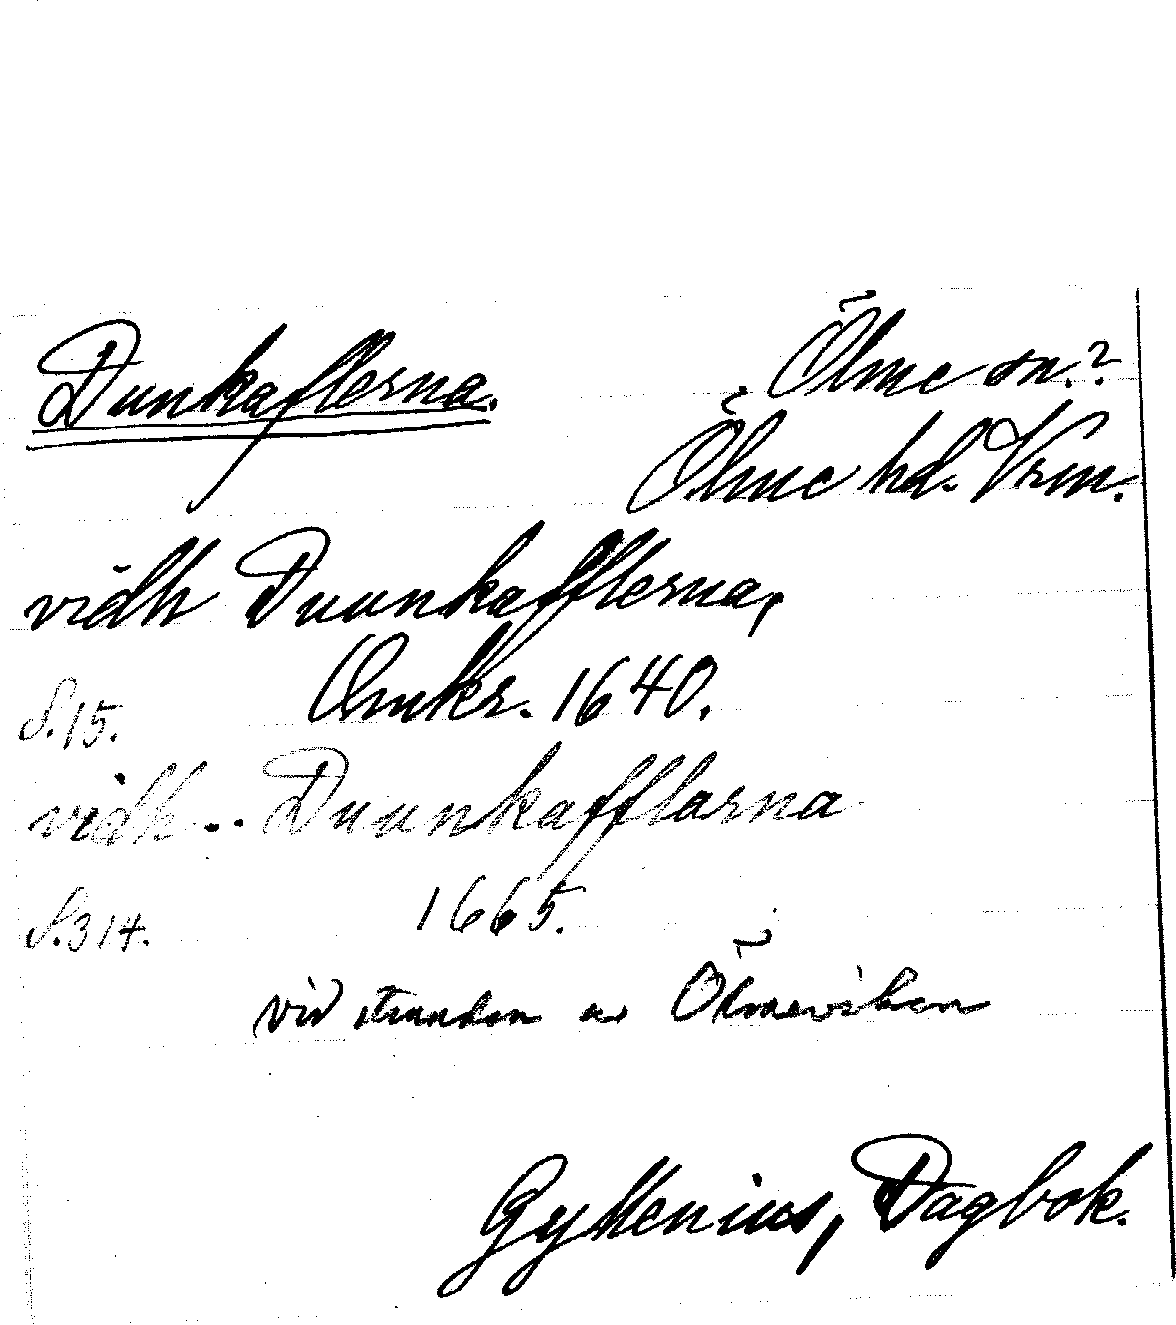 Dunkaflerna.
Ölme sn.?
Ölme hd. Vrm.
vidh Duunkafflerna,
Omkr. 1640.
S. 15.
vidh .. Duunkafflarna
S. 314. 1665.
vid stranden av Ölmeviken
Gyllenius, Dagbok.